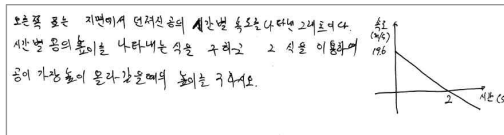 오른쪽 표는 지면에서 던려진 공의 시간별 속도를 나타낸 그래프이다.
시간별 공의 높이를 나타내는 식을 구하고 그 식을 이용하여
공이 가장 높이 올라갔을때의 높이를 구하시오.
속도
(m/s)
19.6
2
시간 (s